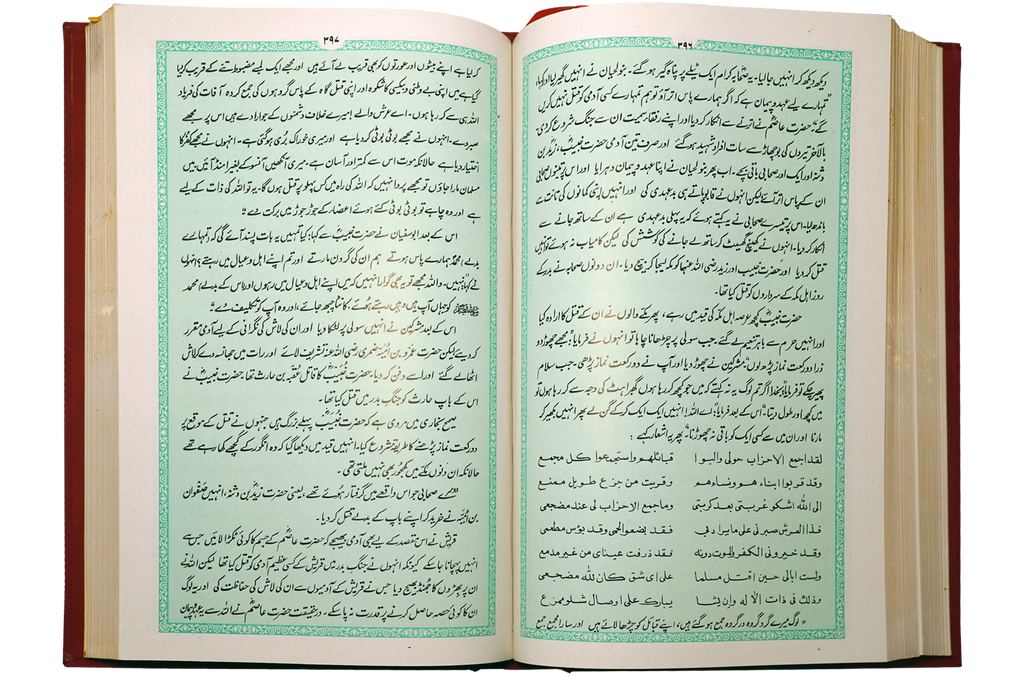 ۳۹۶
دیکھ دیکھ کر انہیں جا لیا۔ یہ صحابہ کرام ایک ٹیلے پر پناہ گیر ہو گئے۔ بنو لحیان نے انہیں گھیر لیا اور کہا،
"تمہارے لیے عہد و پیمان ہے کہ اگر ہمارے پاس اتر آؤ تو ہم تمہارے کسی آدمی کو قتل نہیں کریں
گے"۔ حضرت عاصمؓ نے اترنے سے انکار کر دیا اور اپنے رفقا سمیت ان سے جنگ شروع کر دی،
بالآخر تیروں کی بوچھاڑ سے سات افراد شہید ہو گئے اور صرف تین آدمی حضرت خبیبؓ، زیدؓ بن
دثنہ اور ایک اور صحابی باقی بچے۔ اب پھر بنو لحیان نے اپنا عہد و پیمان دہرایا اور اس پر تینوں صحابی
ان کے پاس اتر آئے لیکن انہوں نے قابو پاتے ہی بدعہدی کی اور انہیں اپنی کمانوں کی تانت سے
باندھ لیا۔ اس پر تیسرے صحابی نے یہ کہتے ہوئے کہ یہ پہلی بدعہدی ہے ان کے ساتھ جانے سے
انکار کر دیا۔ انہوں نے کھینچ گھسیٹ کر ساتھ لے جانے کی کوشش کی لیکن کامیاب نہ ہوئے تو انہیں
قتل کر دیا اور حضرت خبیب اور زید رضی اللہ عنہما کو مکہ لیجا کر بیچ دیا۔ ان دونوں صحابہ نے بدر کے
روز اہل مکہ کے سرداروں کو قتل کیا تھا۔
حضرت خبیبؓ کچھ عرصہ اہل مکہ کی قید میں رہے، پھر مکے والوں نے ان کے قتل کا ارادہ کیا
اور انہیں حرم سے باہر تنعیم لے گئے۔ جب سولی پر چڑھانا چاہا تو انہوں نے فرمایا؛ "مجھے چھوڑ دو
ذرا دو رکعت نماز پڑھ لوں"۔ مشرکین نے چھوڑ دیا اور آپ نے دو رکعت نماز پڑھی۔ جب سلام
پھیر چکے تو فرمایا؛ بخدا اگر تم لوگ یہ نہ کہتے کہ میں جو کچھ کر رہا ہوں گھبراہٹ کی وجہ سے کر رہا ہوں تو
میں کچھ اور طول دیتا"۔ اس کے بعد فرمایا؛ "اے اللہ! انہیں ایک ایک کر کے گن لے پھر انہیں بکھیر کر
مارنا اور ان میں سے کسی ایک کو باقی نہ چھوڑنا" پھر یہ اشعار کہے :
لقد اجمع الاحزاب حولی والبوا قبائلهم واستجمعوا کل مجمع
وقد قربوا ابناءهم ونساءهم وقربت من جزع طویل ممنع
الی الله اشکو غربتی بعد کربتی وما جمع الاحزاب لی عند مضجعی
فذا العرش صبرنی علی ما یراد بی فقد بضعوا لحمی وقد بؤس مطعمی
وقد خیرونی الکفر والموت دونه فقد ذرفت عینای من غیر مدمع
ولست ابالی حین اقتل مسلما علی ای شق کان لله مضجعی
وذلک فی ذات الاله وان یشا یبارک علی اوصال شلو ممزع
"لوگ میرے گرد گروہ در گروہ جمع ہو گئے ہیں، اپنے قبائل کو چڑھا لائے ہیں اور سارا مجمع جمع
۳۹۷
کر لیا ہے اپنے بیٹوں اور عورتوں کو بھی قریب لے آئے ہیں اور مجھے ایک لمبے مضبوط تنے کے قریب کیا
گیا ہے میں اپنی بے وطنی و بیکسی کا شکوہ اور اپنی قتل گاہ کے پاس گروہوں کی جمع کردہ آفات کی فریاد
اللہ ہی سے کر رہا ہوں۔ اے عرش والے! میرے خلاف دشمنوں کے جو ارادے ہیں اس پر مجھے
صبر دے۔ انہوں نے مجھے بوٹی بوٹی کر دیا ہے اور میری خوراک بُری ہو گئی ہے۔ انہوں نے مجھے کفر کا
اختیار دیا ہے حالانکہ موت اس سے کمتر اور آسان ہے۔ میری آنکھیں آنسو کے بغیر امنڈ آئیں۔ میں
مسلمان مارا جاؤں تو مجھے پروا نہیں کہ اللہ کی راہ میں کس پہلو پر قتل ہوں گا۔ یہ تو اللہ کی ذات کے لیے
ہے اور وہ چاہے تو بوٹی بوٹی کئے ہوئے اعضار کے جوڑ جوڑ میں برکت دے"
اس کے بعد ابوسفیان نے حضرت خبیبؓ سے کہا؛ کیا تمہیں یہ بات پسند آئے گی کہ تمہارے
بدلے) محمدؐ ہمارے پاس ہوتے ہم ان کی گردن مارتے اور تم اپنے اہل و عیال میں رہتے؟ انہوں
نے کہا؛ "نہیں۔ واللہ مجھے تو یہ بھی گوارا نہیں کہ میں اپنے اہل و عیال میں رہوں اور (اس کے بدلے) محمد
ﷺ کو جہاں آپ ہیں وہیں رہتے ہوئے کانٹا چبھ جائے، اور وہ آپ کو تکلیف دے"
اس کے بعد مشرکین نے انہیں سولی پر لٹکا دیا اور ان کی لاش کی نگرانی کے لیے آدمی مقرر
کر دیے لیکن حضرت عمرو بن امیہ ضمری رضی اللہ عنہ تشریف لائے اور رات میں جھانسہ دے کر لاش
اٹھا لے گئے اور اسے دفن کر دیا۔ حضرت خبیبؓ کا قاتل عقبہ بن حارث تھا۔ حضرت خبیبؓ نے
اس کے باپ حارث کو جنگ بدر میں قتل کیا تھا۔
صحیح بخاری میں مروی ہے کہ حضرت خبیبؓ پہلے بزرگ ہیں جنہوں نے قتل کے موقع پر
دو رکعت نماز پڑھنے کا طریقہ شروع کیا۔ انہیں قید میں دیکھا گیا کہ وہ انگور کے گچھے کھا رہے تھے
حالانکہ ان دنوں مکے میں کھجور بھی نہیں ملتی تھی۔
دوسرے صحابی جو اس واقعے میں گرفتار ہوئے تھے، یعنی حضرت زیدؓ بن دثنہ، انہیں صفوان
بن امیہ نے خرید کر اپنے باپ کے بدلے قتل کر دیا۔
قریش نے اس مقصد کے لیے بھی آدمی بھیجے کہ حضرت عاصمؓ کے جسم کا کوئی ٹکڑا لائیں جس سے
انہیں پہچانا جا سکے کیونکہ انہوں نے جنگ بدر میں قریش کے کسی عظیم آدمی کو قتل کیا تھا لیکن اللہ نے
ان پر بھڑوں کا جھنڈ بھیج دیا جس نے قریش کے آدمیوں سے ان کی لاش کی حفاظت کی اور یہ لوگ
ان کا کوئی حصہ حاصل کرنے پر قدرت نہ پا سکے۔ درحقیقت حضرت عاصمؓ نے اللہ سے یہ عہد و پیمان